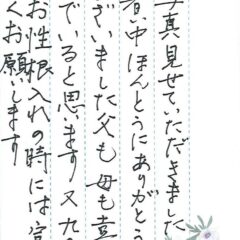 写真見せていただきました
暑い中ほんとうにありがとう
ございました父も母も喜
でいると思います又九
お性根入れの時には宜
くお願いします